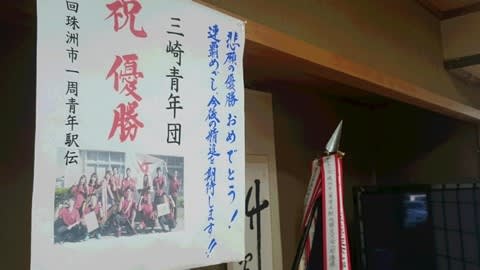 悲願の優勝おめでとう！
連覇めざし、今後の精進を期待します!!
三崎青年団
祝 優勝
回珠洲市一周青年駅伝